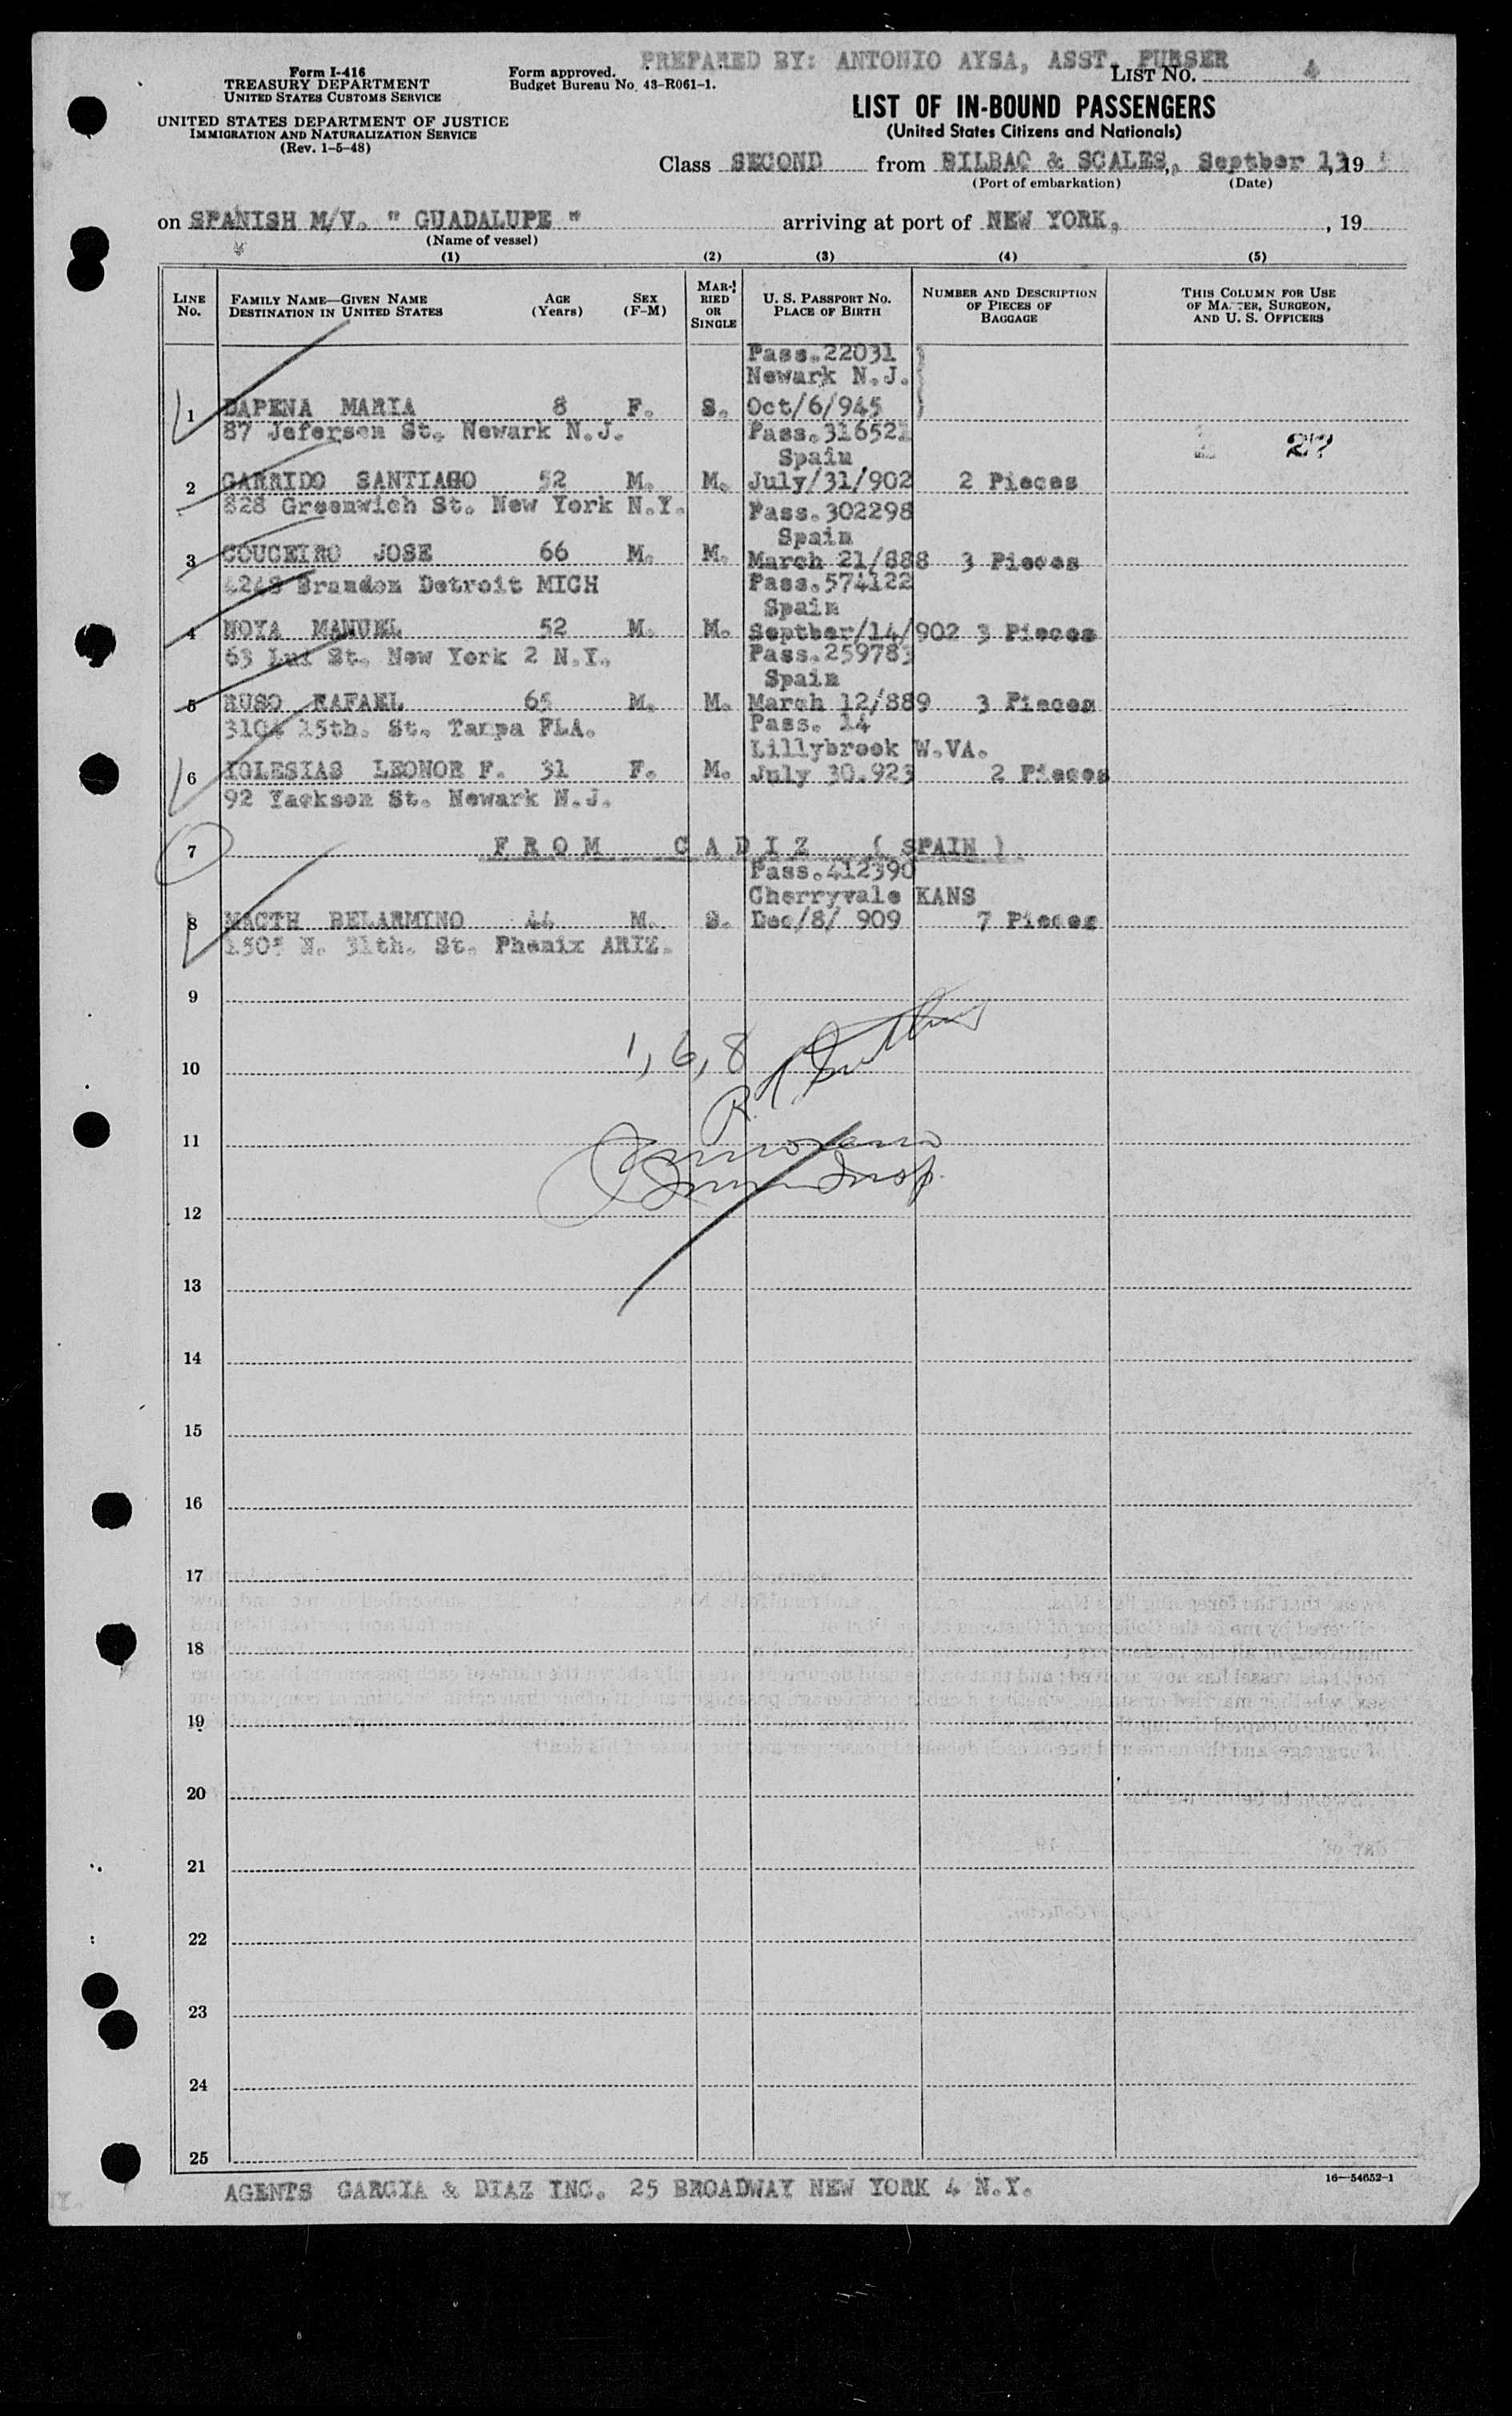 PREPARED BY: ANTONIO AYSA, ASST. PURSER
Form I-416
TREASURY DEPARTMENT
UNITED STATES CUSTOMS SERVICE
UNITED STATES DEPARTMENT OF JUSTICE
IMMIGRATION AND NATURALIZATION SERVICE
(Rev. 1-5-48)
Form approved.
Budget Bureau No. 43-R061-1.
LIST NO. 4
LIST OF IN-BOUND PASSENGERS
(United States Citizens and Nationals)
Class SECOND from BILBAO & SCALES, Septber 13, 19
(Port of embarkation) (Date)
on SPANISH M/V. " GUADALUPE " arriving at port of NEW YORK, , 19
(Name of vessel)
(1) (2) (3) (4) (5)
LINE NO.
FAMILY NAME—GIVEN NAME
DESTINATION IN UNITED STATES
AGE (Years)
SEX (F-M)
MARRIED OR SINGLE
U. S. PASSPORT NO.
PLACE OF BIRTH
NUMBER AND DESCRIPTION OF PIECES OF BAGGAGE
THIS COLUMN FOR USE OF MASTER, SURGEON, AND U. S. OFFICERS
Pass.22031
Newark N.J.
1 DAPENA MARIA 8 F. S. Oct/6/945
87 Jeferson St. Newark N.J. Pass.316521
Spain 27
2 GARRIDO SANTIAGO 52 M. M. July/31/902 2 Pieces
828 Greenwich St. New York N.Y. Pass.302298
Spain
3 COUCEIRO JOSE 66 M. M. March 21/888 3 Pieces
4248 Brandon Detroit MICH Pass.574122
Spain
4 NOYA MANUEL 52 M. M. Septber/14/902 3 Pieces
63 St. New York 2 N.Y. Pass.259783
Spain
5 RUSO RAFAEL 65 M. M. March 12/889 3 Pieces
3104 15th. St. Tampa FLA. Pass. 14
Lillybrook W.VA.
6 IGLESIAS LEONOR F. 31 F. M. July 30.923 2 Pieces
92 Yackson St. Newark N.J.
7 FROM CADIZ ( SPAIN )
Pass.412390
Cherryvale KANS
8 MACTH BELARMINO 44 M. S. Dec/8/ 909 7 Pieces
1505 N. 31th. St. Phenix ARIZ.
9
1, 6, 8
10
11
12
13
14
15
16
17
18
19
20
21
22
23
24
25
16—54652-1
AGENTS GARCIA & DIAZ INC. 25 BROADWAY NEW YORK 4 N.Y.